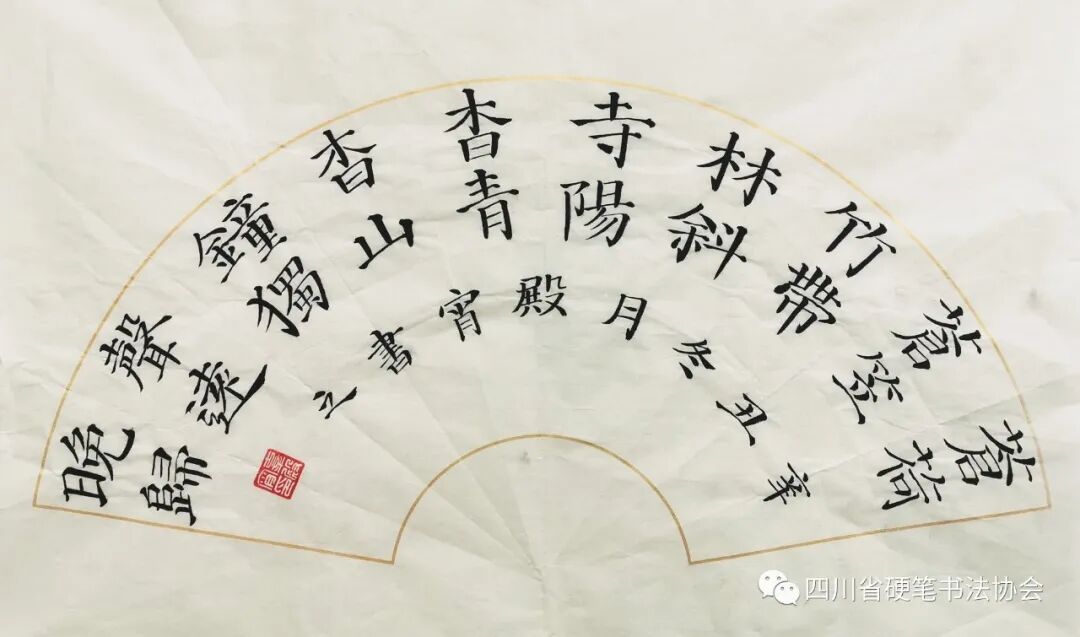 蒼蒼竹林寺杳杳鐘聲晚
荷笠帶斜陽青山獨遠歸
辛丑冬月殿宵書之
四川省硬笔书法协会